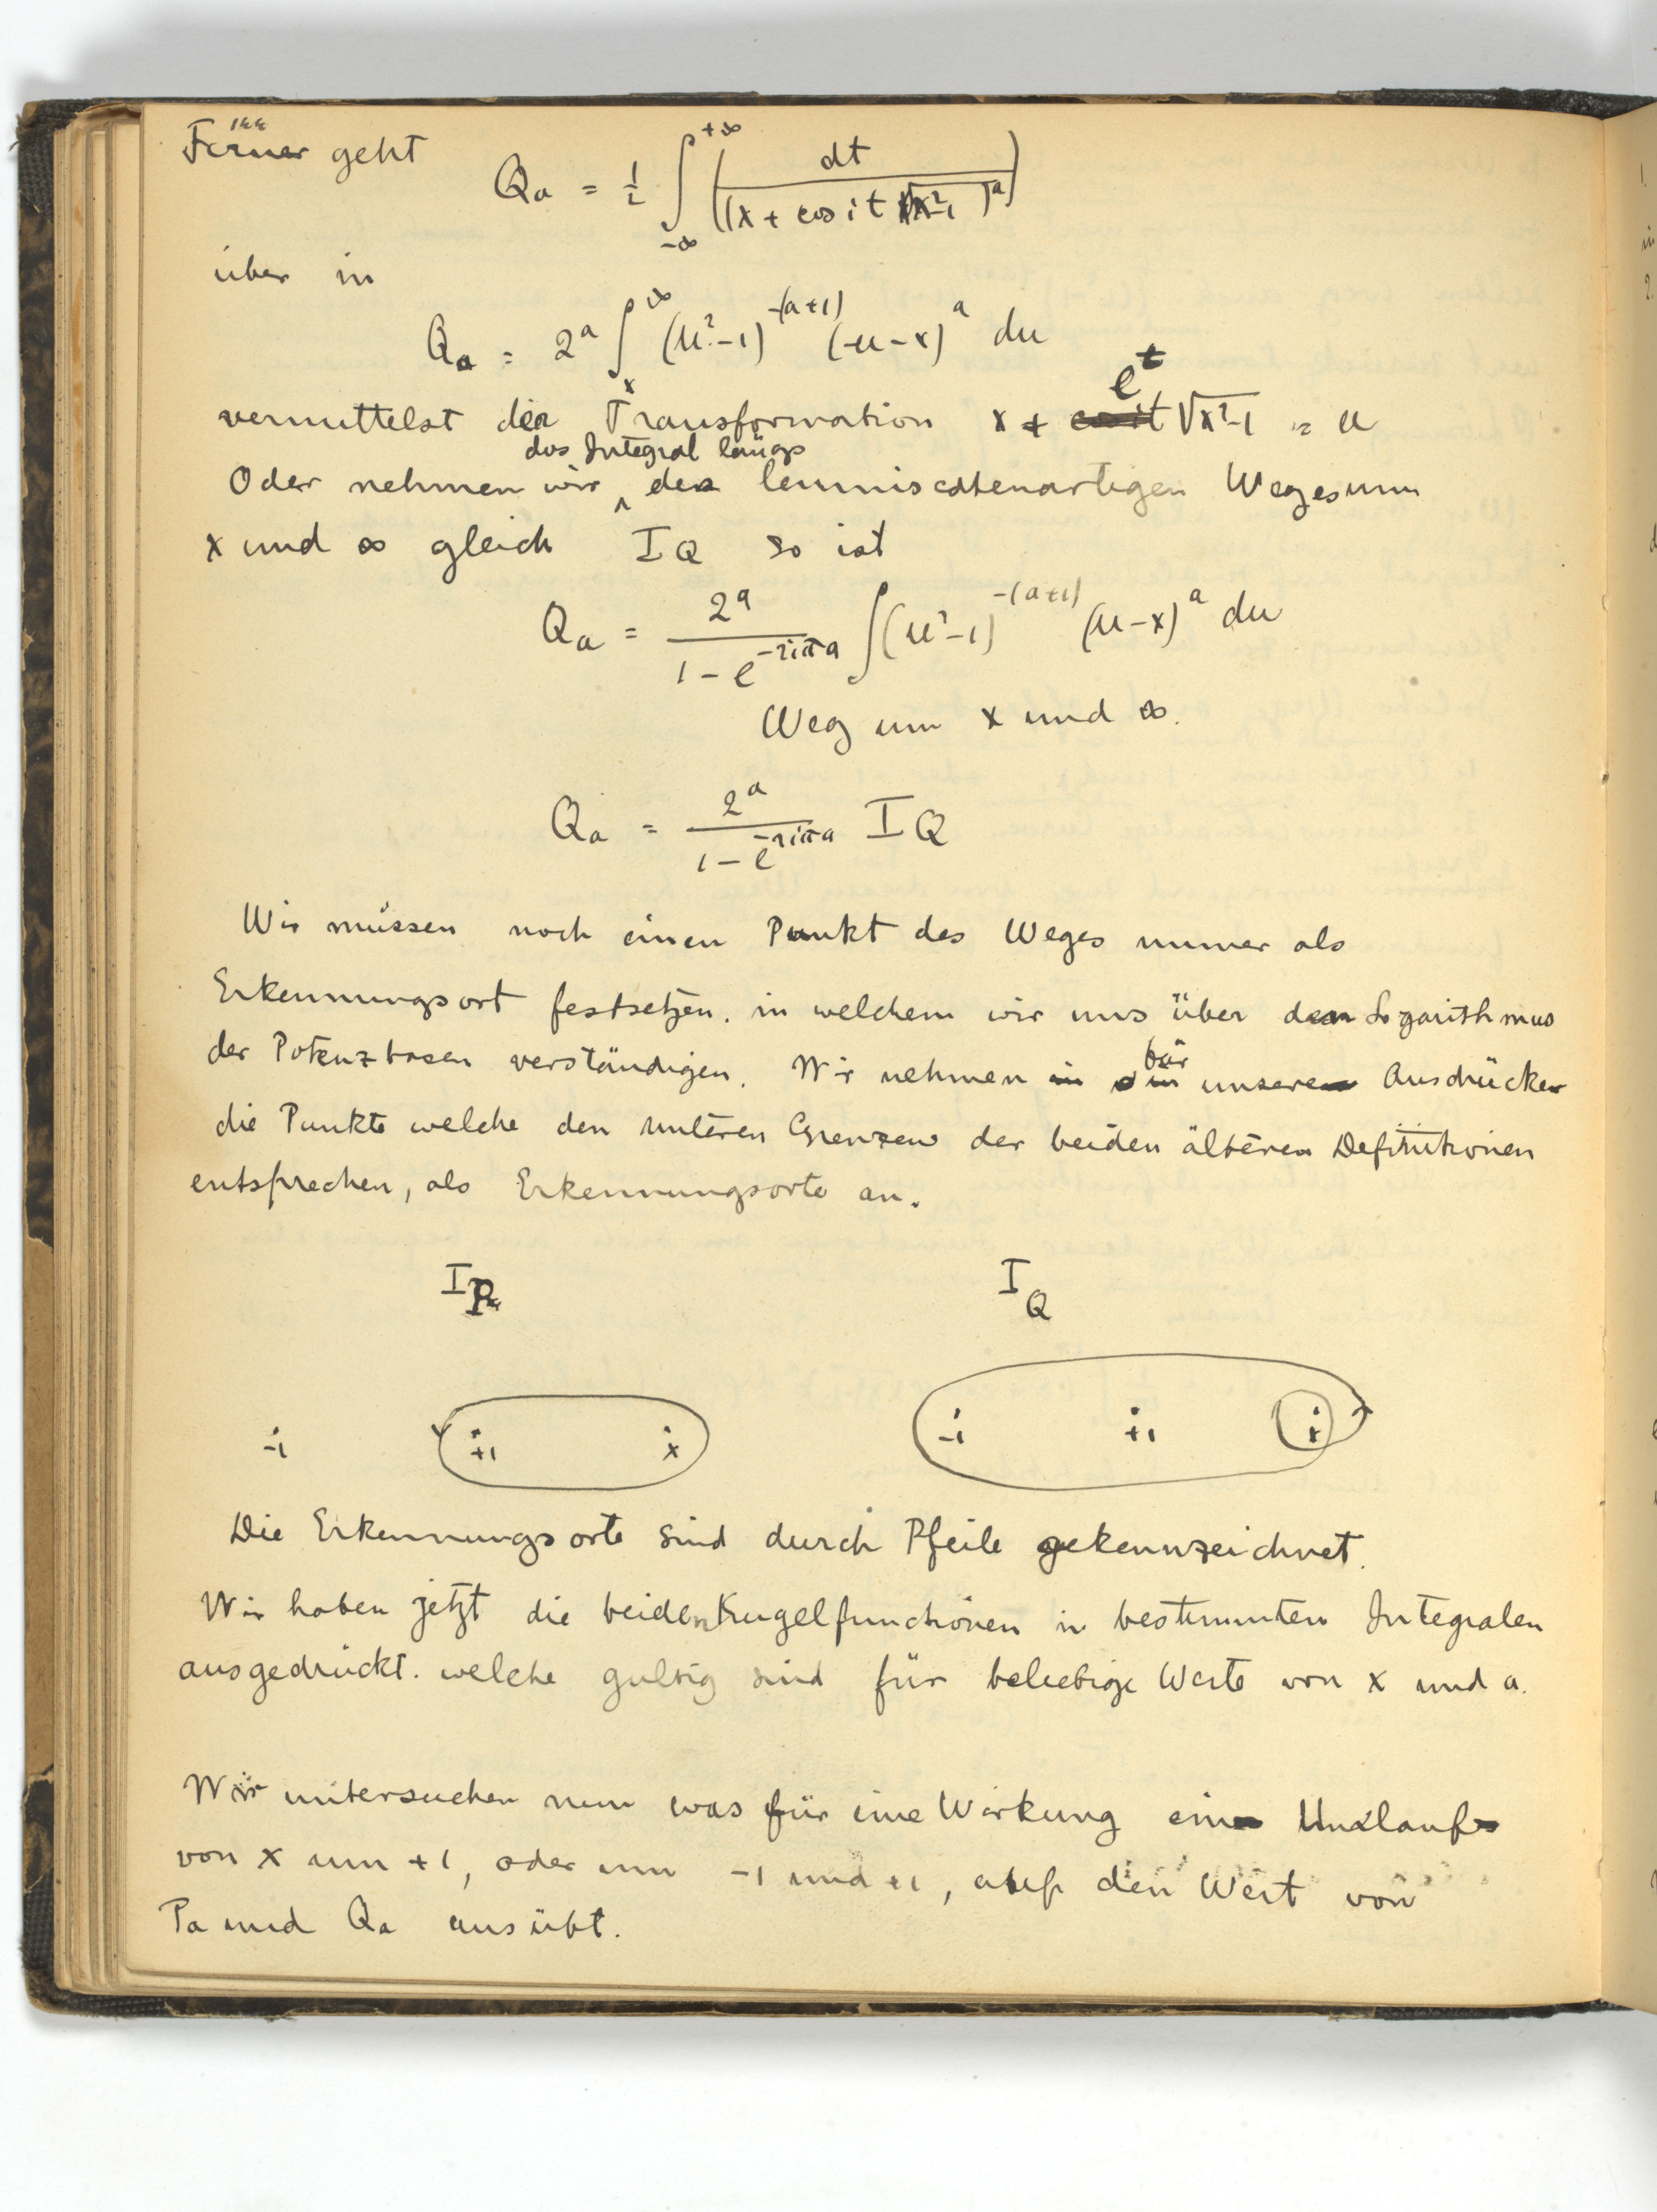 Ferner geht
Q_a = 1/2 ∫_{-∞}^{+∞} ( dt / (x + cos i t √(x²-1))^a )
über in
Q_a = 2^a ∫_x^∞ (u²-1)^{-(a+1)} (u-x)^a du
vermittelst der Transformation x + e^t √(x²-1) = u
das Integral längs
Oder nehmen wir des lemniscatenartigen Weges um
x und ∞ gleich I_Q so ist
Q_a = 2^a / (1 - e^{-2iπa}) ∫ (u²-1)^{-(a+1)} (u-x)^a du
Weg um x und ∞.
Q_a = 2^a / (1 - e^{-2iπa}) I_Q
Wir müssen noch einen Punkt des Weges immer als
Erkennungsort festsetzen. in welchem wir uns über den Logarithmus
der Potenzbasen verständigen. Wir nehmen für unsere Ausdrücke
die Punkte welche den unteren Grenzen der beiden älteren Definitionen
entsprechen, als Erkennungsorte an.
I_P I_Q
-1 +1 x -1 +1 x
Die Erkennungsorte sind durch Pfeile gekennzeichnet.
Wir haben jetzt die beiden Kugelfunctionen in bestimmten Integralen
ausgedrückt. welche gultig sind für beliebige Werte von x und a.
Wir untersuchen nun was für eine Wirkung ein Umlauf
von x um +1, oder um -1 und +1, auf den Wert von
P_a und Q_a ausübt.